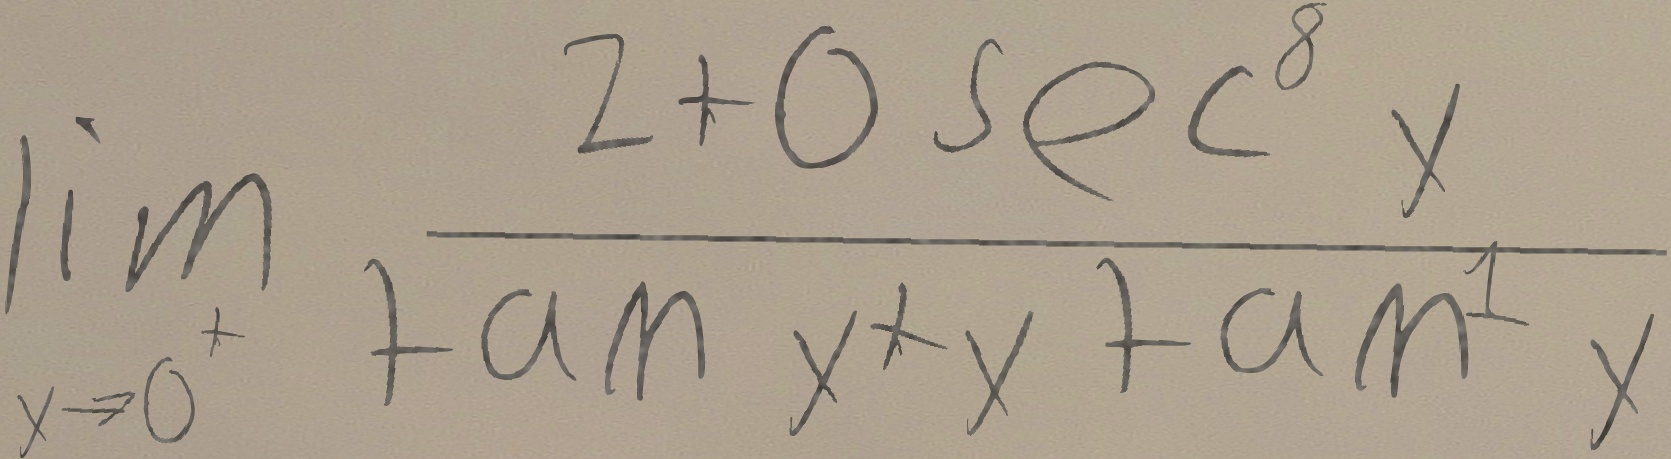 \lim_{y \to 0^+} \frac{2+0 \sec^8 y}{\tan y+y \tan^1 y}